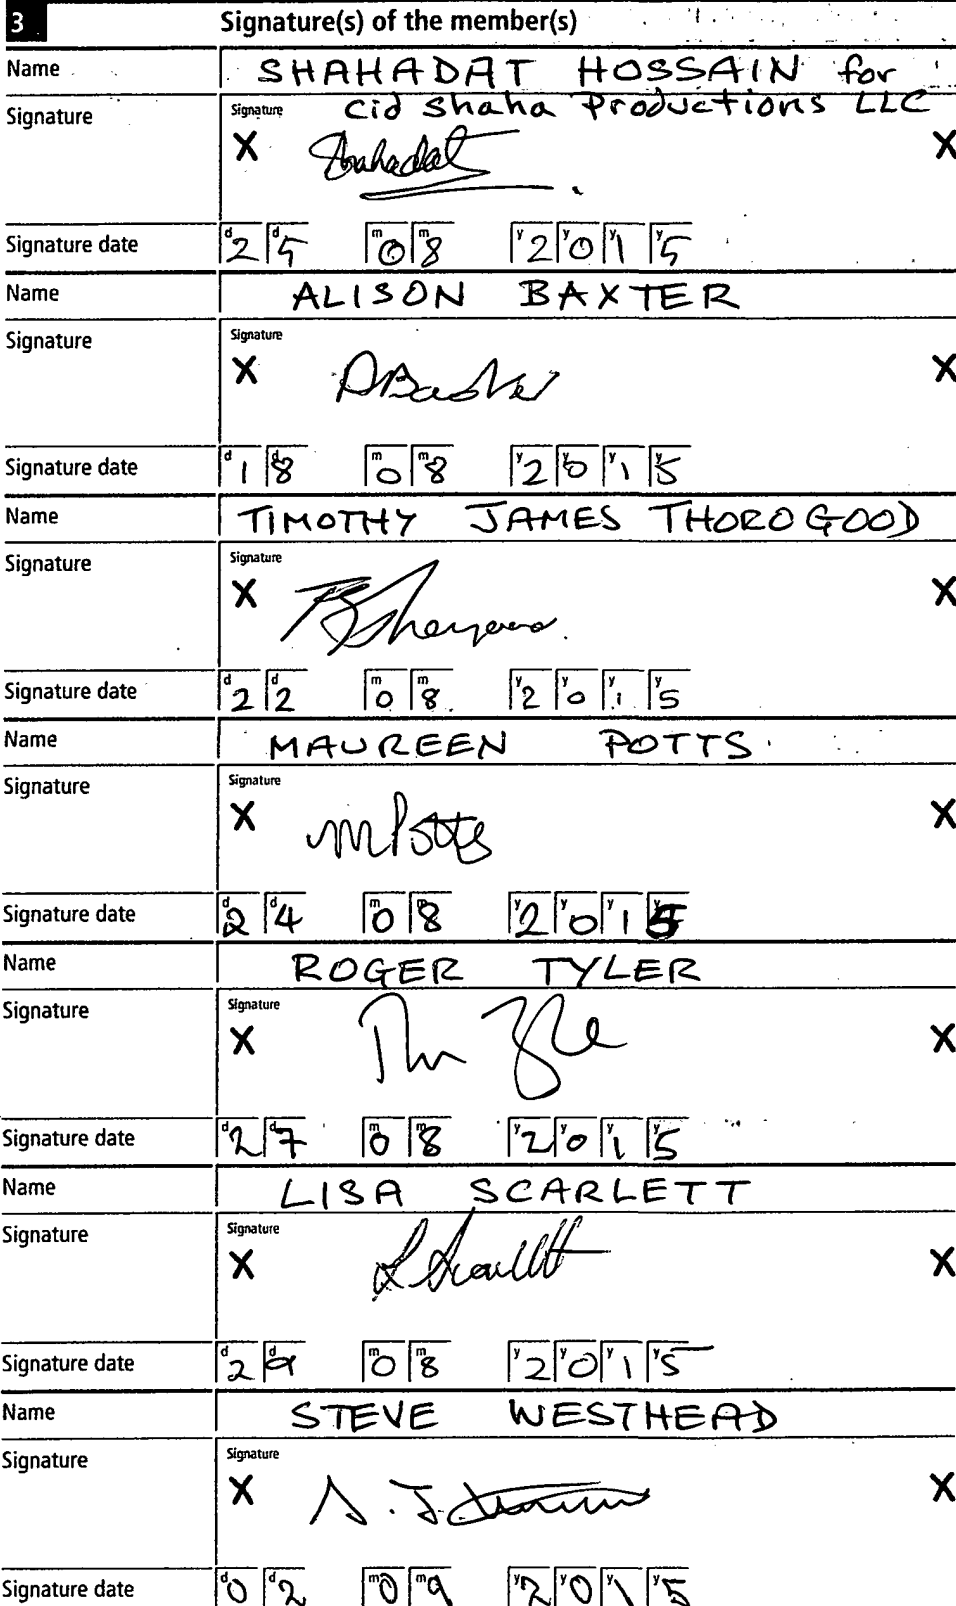 3 Signature(s) of the member(s)
Name SHAHADAT HOSSAIN for
Signature Signature cid shaha Productions LLC
X Shahadat X
Signature date d2 d5 m0 m8 y2 y0 y1 y5
Name ALISON BAXTER
Signature Signature
X ABaxter X
Signature date d1 d8 m0 m8 y2 y0 y1 y5
Name TIMOTHY JAMES THOROGOOD
Signature Signature
X X
Signature date d2 d2 m0 m8 y2 y0 y1 y5
Name MAUREEN POTTS
Signature Signature
X M Potts X
Signature date d2 d4 m0 m8 y2 y0 y1 y5
Name ROGER TYLER
Signature Signature
X X
Signature date d2 d7 m0 m8 y2 y0 y1 y5
Name LISA SCARLETT
Signature Signature
X L Scarlett X
Signature date d2 d9 m0 m8 y2 y0 y1 y5
Name STEVE WESTHEAD
Signature Signature
X X
Signature date d0 d2 m0 m9 y2 y0 y1 y5